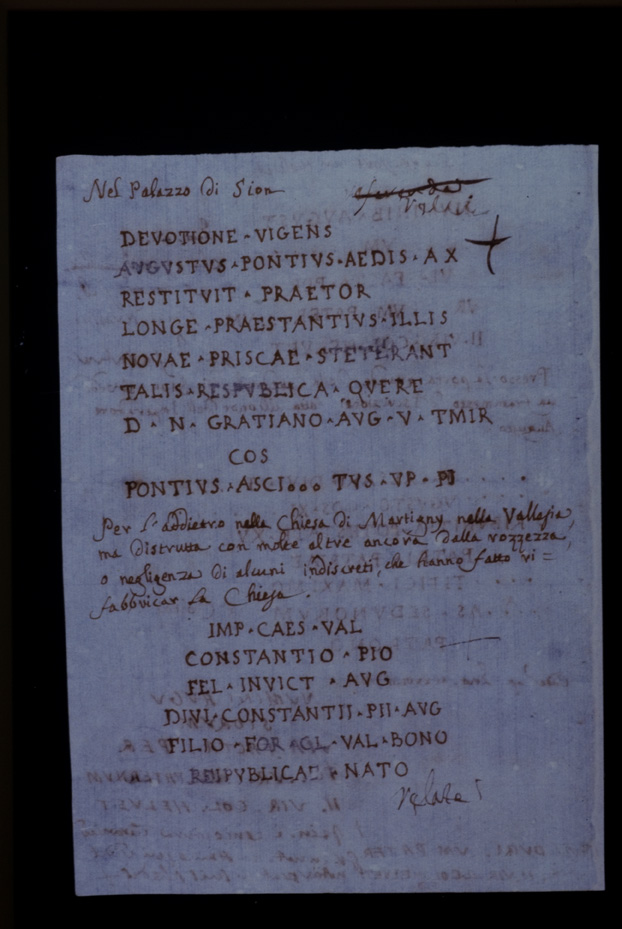 Nel Palazzo di Sion
DEVOTIONE · VIGENS
AVGVSTVS · PONTIVS · AEDIS · A X
RESTITVIT · PRAETOR
LONGE · PRAESTANTIVS · ILLIS
NOVAE · PRISCAE · STETERANT
TALIS · RESPVBLICA · QVERE
D · N · GRATIANO · AVG · V · TMIR
COS
PONTIVS · ASCI... TVS · VP · PJ
Per l'addietro nella Chiesa di Martigny nella Vallesia,
ma distrutta con molte altre ancora dalla rozzezza,
o negligenza di alcuni indiscreti, che hanno fatto ri =
fabbricar la Chiesa.
IMP · CAES · VAL
CONSTANTIO · PIO
FEL · INVICT · AVG
DIVI · CONSTANTII · PII · AVG
FILIO · FOR GL · VAL · BONO
REIPVBLICAE · NATO